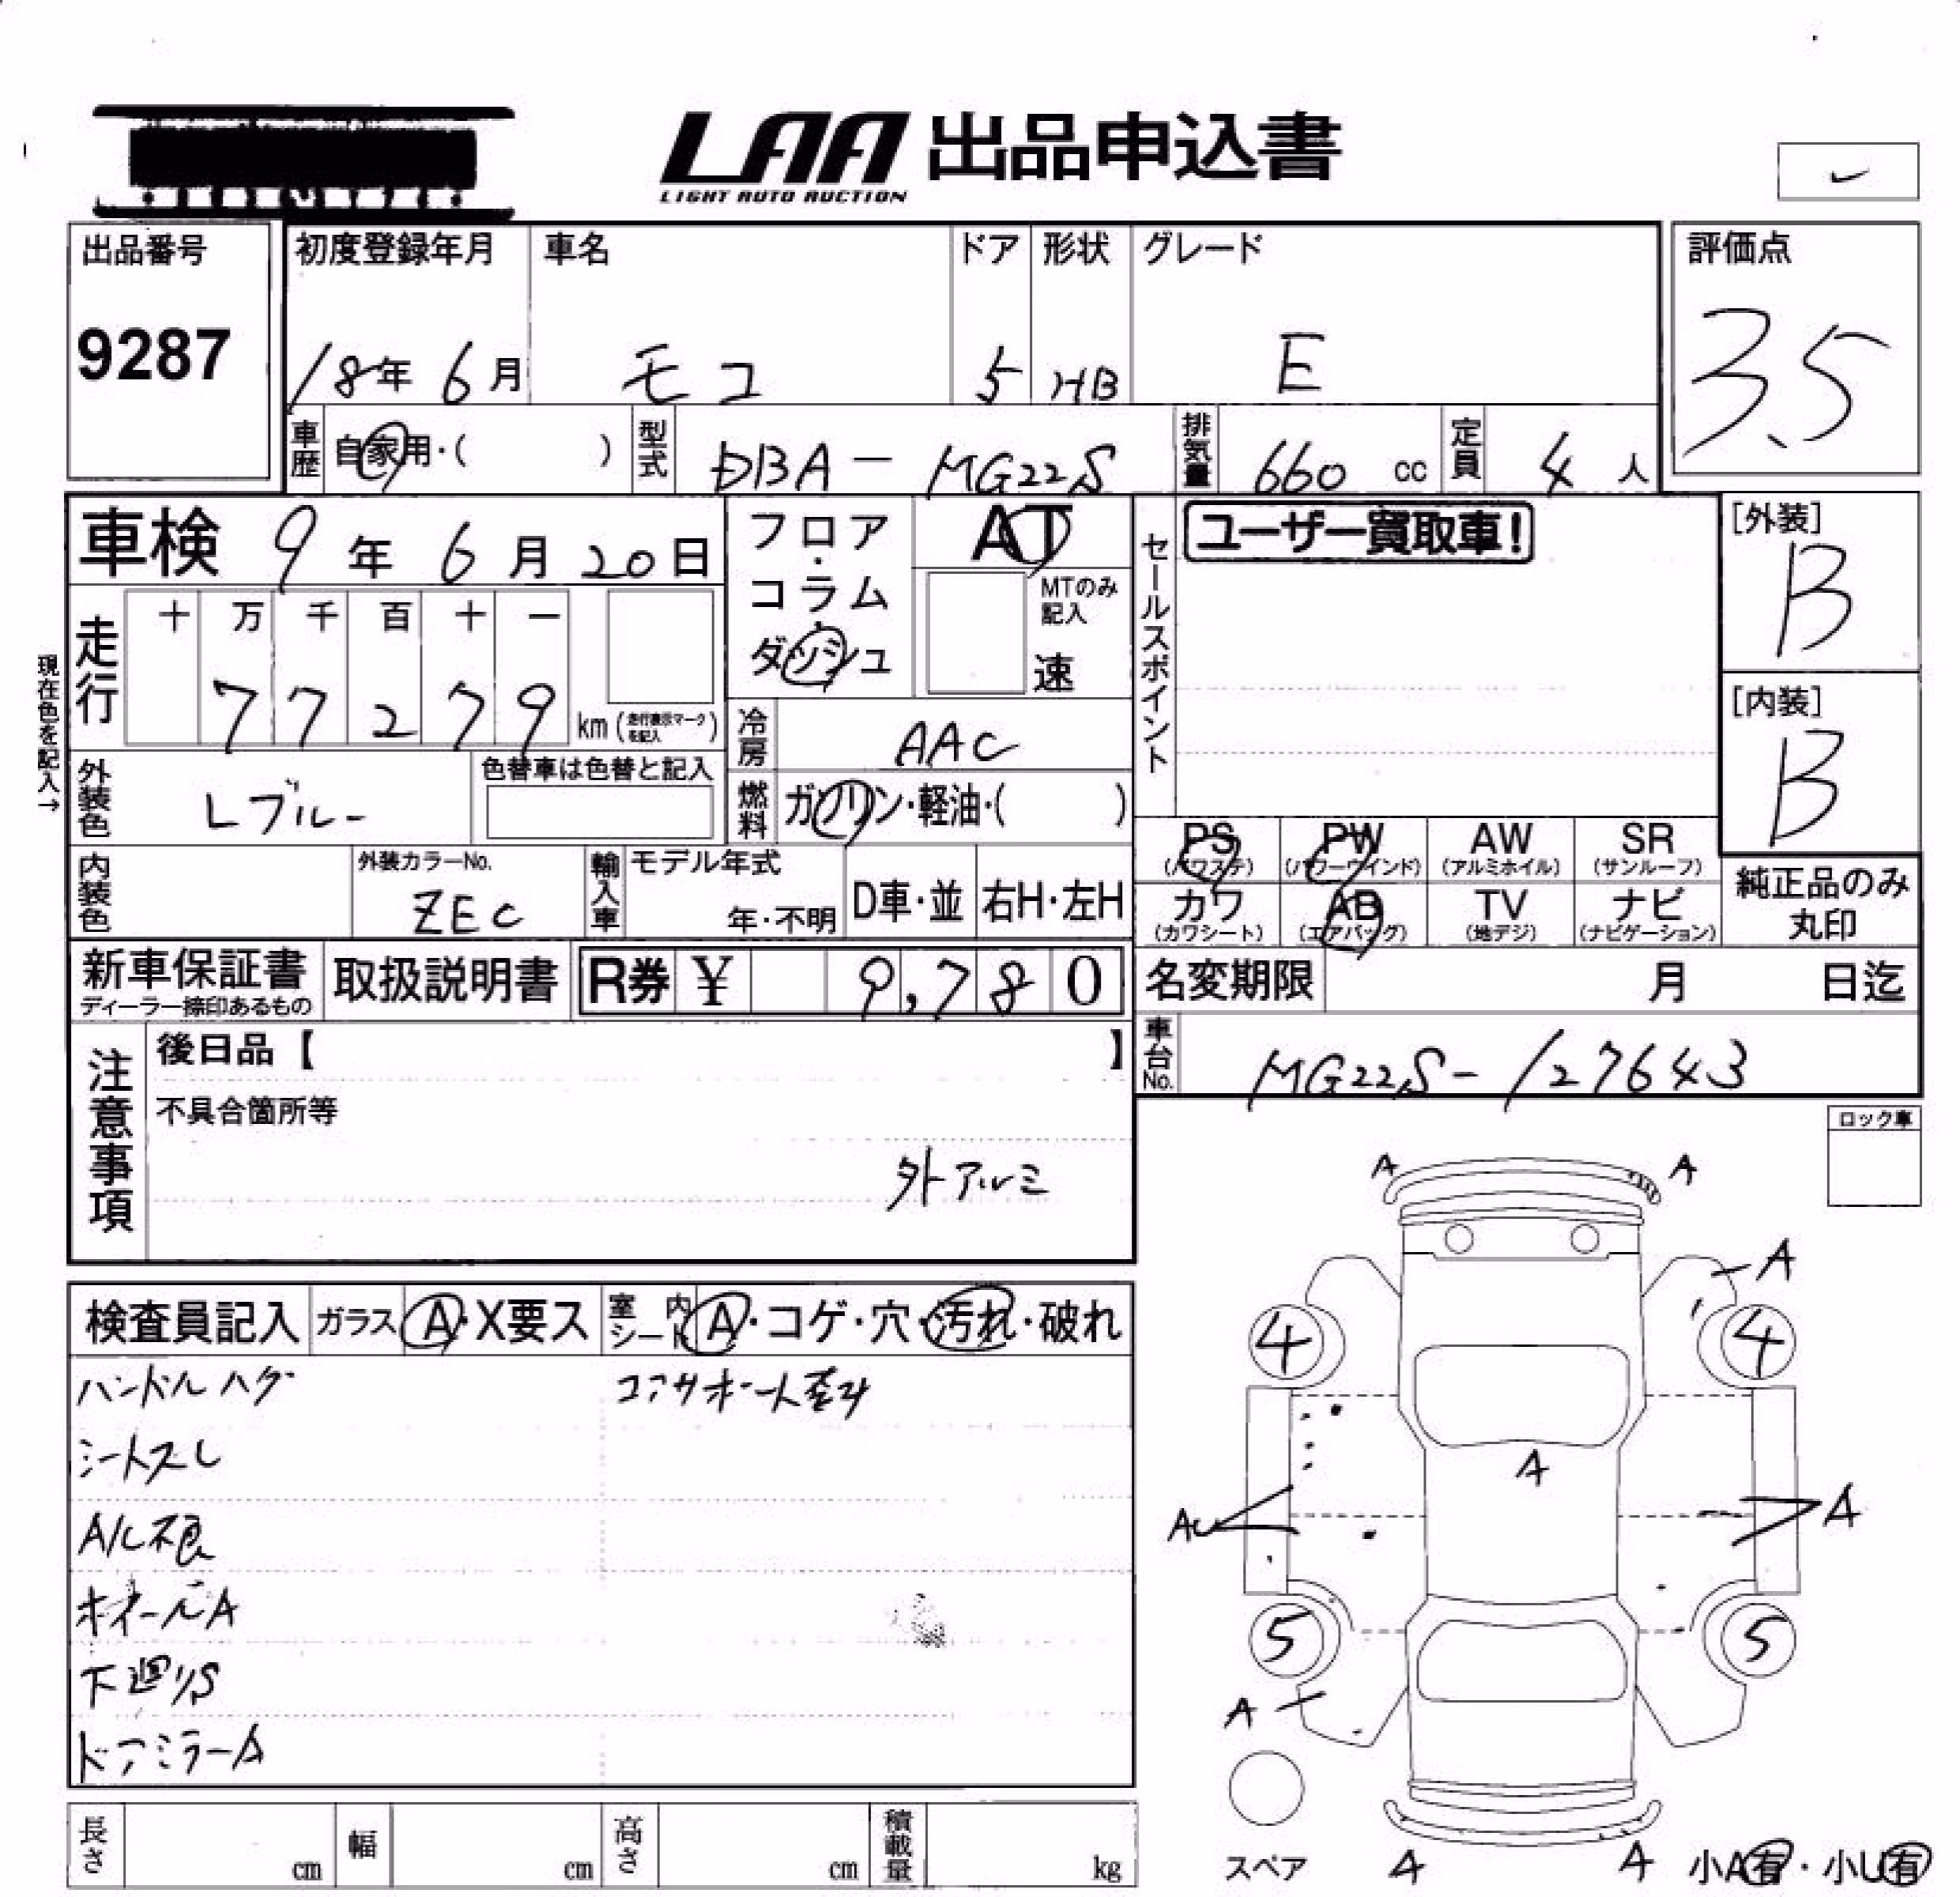 LAA 出品申込書
LIGHT AUTO AUCTION
出品番号 初度登録年月 車名 ドア 形状 グレード 評価点
9287 18年 6月 モコ 5 HB E 3.5
車歴 自家用・( ) 型式 DBA-MG22S 排気量 660 cc 定員 4 人
車検 9年 6月 20日 フロア・コラム・ダッシュ AT MTのみ記入 速
セールスポイント ユーザー買取車! [外装] B
走行 十 万 千 百 十 一
7 7 2 7 9 km (走行表示マークを記入)
[内装] B
現在色を記入→
冷房 AAC
外装色 Lブルー 色替車は色替と記入 燃料 ガソリン・軽油・( )
PS (パワステ) PW (パワーウインド) AW (アルミホイル) SR (サンルーフ)
内装色 外装カラーNo. ZEC 輸入車 モデル年式 年・不明 D車・並 右H・左H
カワ (カワシート) AB (エアバッグ) TV (地デジ) ナビ (ナビゲーション) 純正品のみ丸印
新車保証書 ディーラー捺印あるもの 取扱説明書 R券 ¥ 9,780 名変期限 月 日迄
注意事項 後日品【 】 車台No. MG22S-127643
不具合箇所等 ロック車
外アルミ
A A
A
検査員記入 ガラス A・X要ス 室内シート A・コゲ・穴・汚れ・破れ
4 4
ハンドルハゲ コアサポート歪み
シートスレ
A
A/C不良 A
ホイールA
5 5
下廻りS
A
ドアミラーA
長さ cm 幅 cm 高さ cm 積載量 kg
スペア A A 小A有・小U有